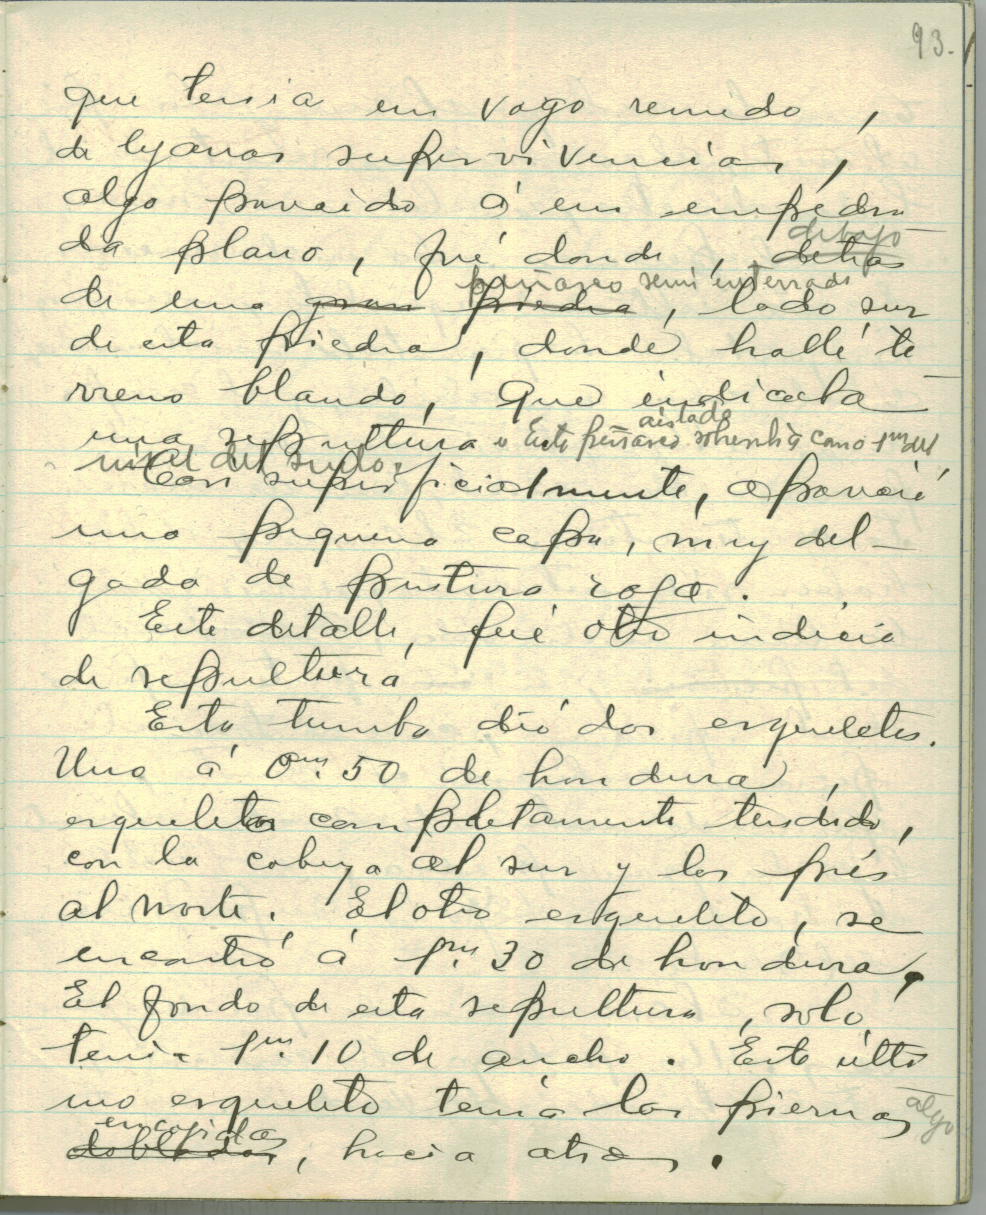 93.
que tenia un vago remedo ,
de lejanas supervivencias ,
algo parecido á un empedra
debajo
do plano , fué donde , detras
peñasco semi enterrado
de una gran piedra , lado sur
de esta piedra , donde hallé te
rreno blando, que indicaba
aislado
una sepultura . Este peñasco sobresalia como 1m del
nivel del suelo.
Casi superficialmente, apareció
una pequeña capa, muy del-
gada de pintura roja .
Este detalle, fué otro indicio
de sepultura
Esta tumba dió dos esqueletos.
Uno á 0m. 50 de hondura ,
esqueleto completamente tendido,
con la cabeza al sur y los piés
al norte. El otro esqueleto, se
encontró á 1m. 30 de hondura.
El fondo de esta sepultura , solo
tenia 1m. 10 de ancho . Este últi
mo esqueleto tenia las piernas algo
encojidas
dobladas, hacia atras .